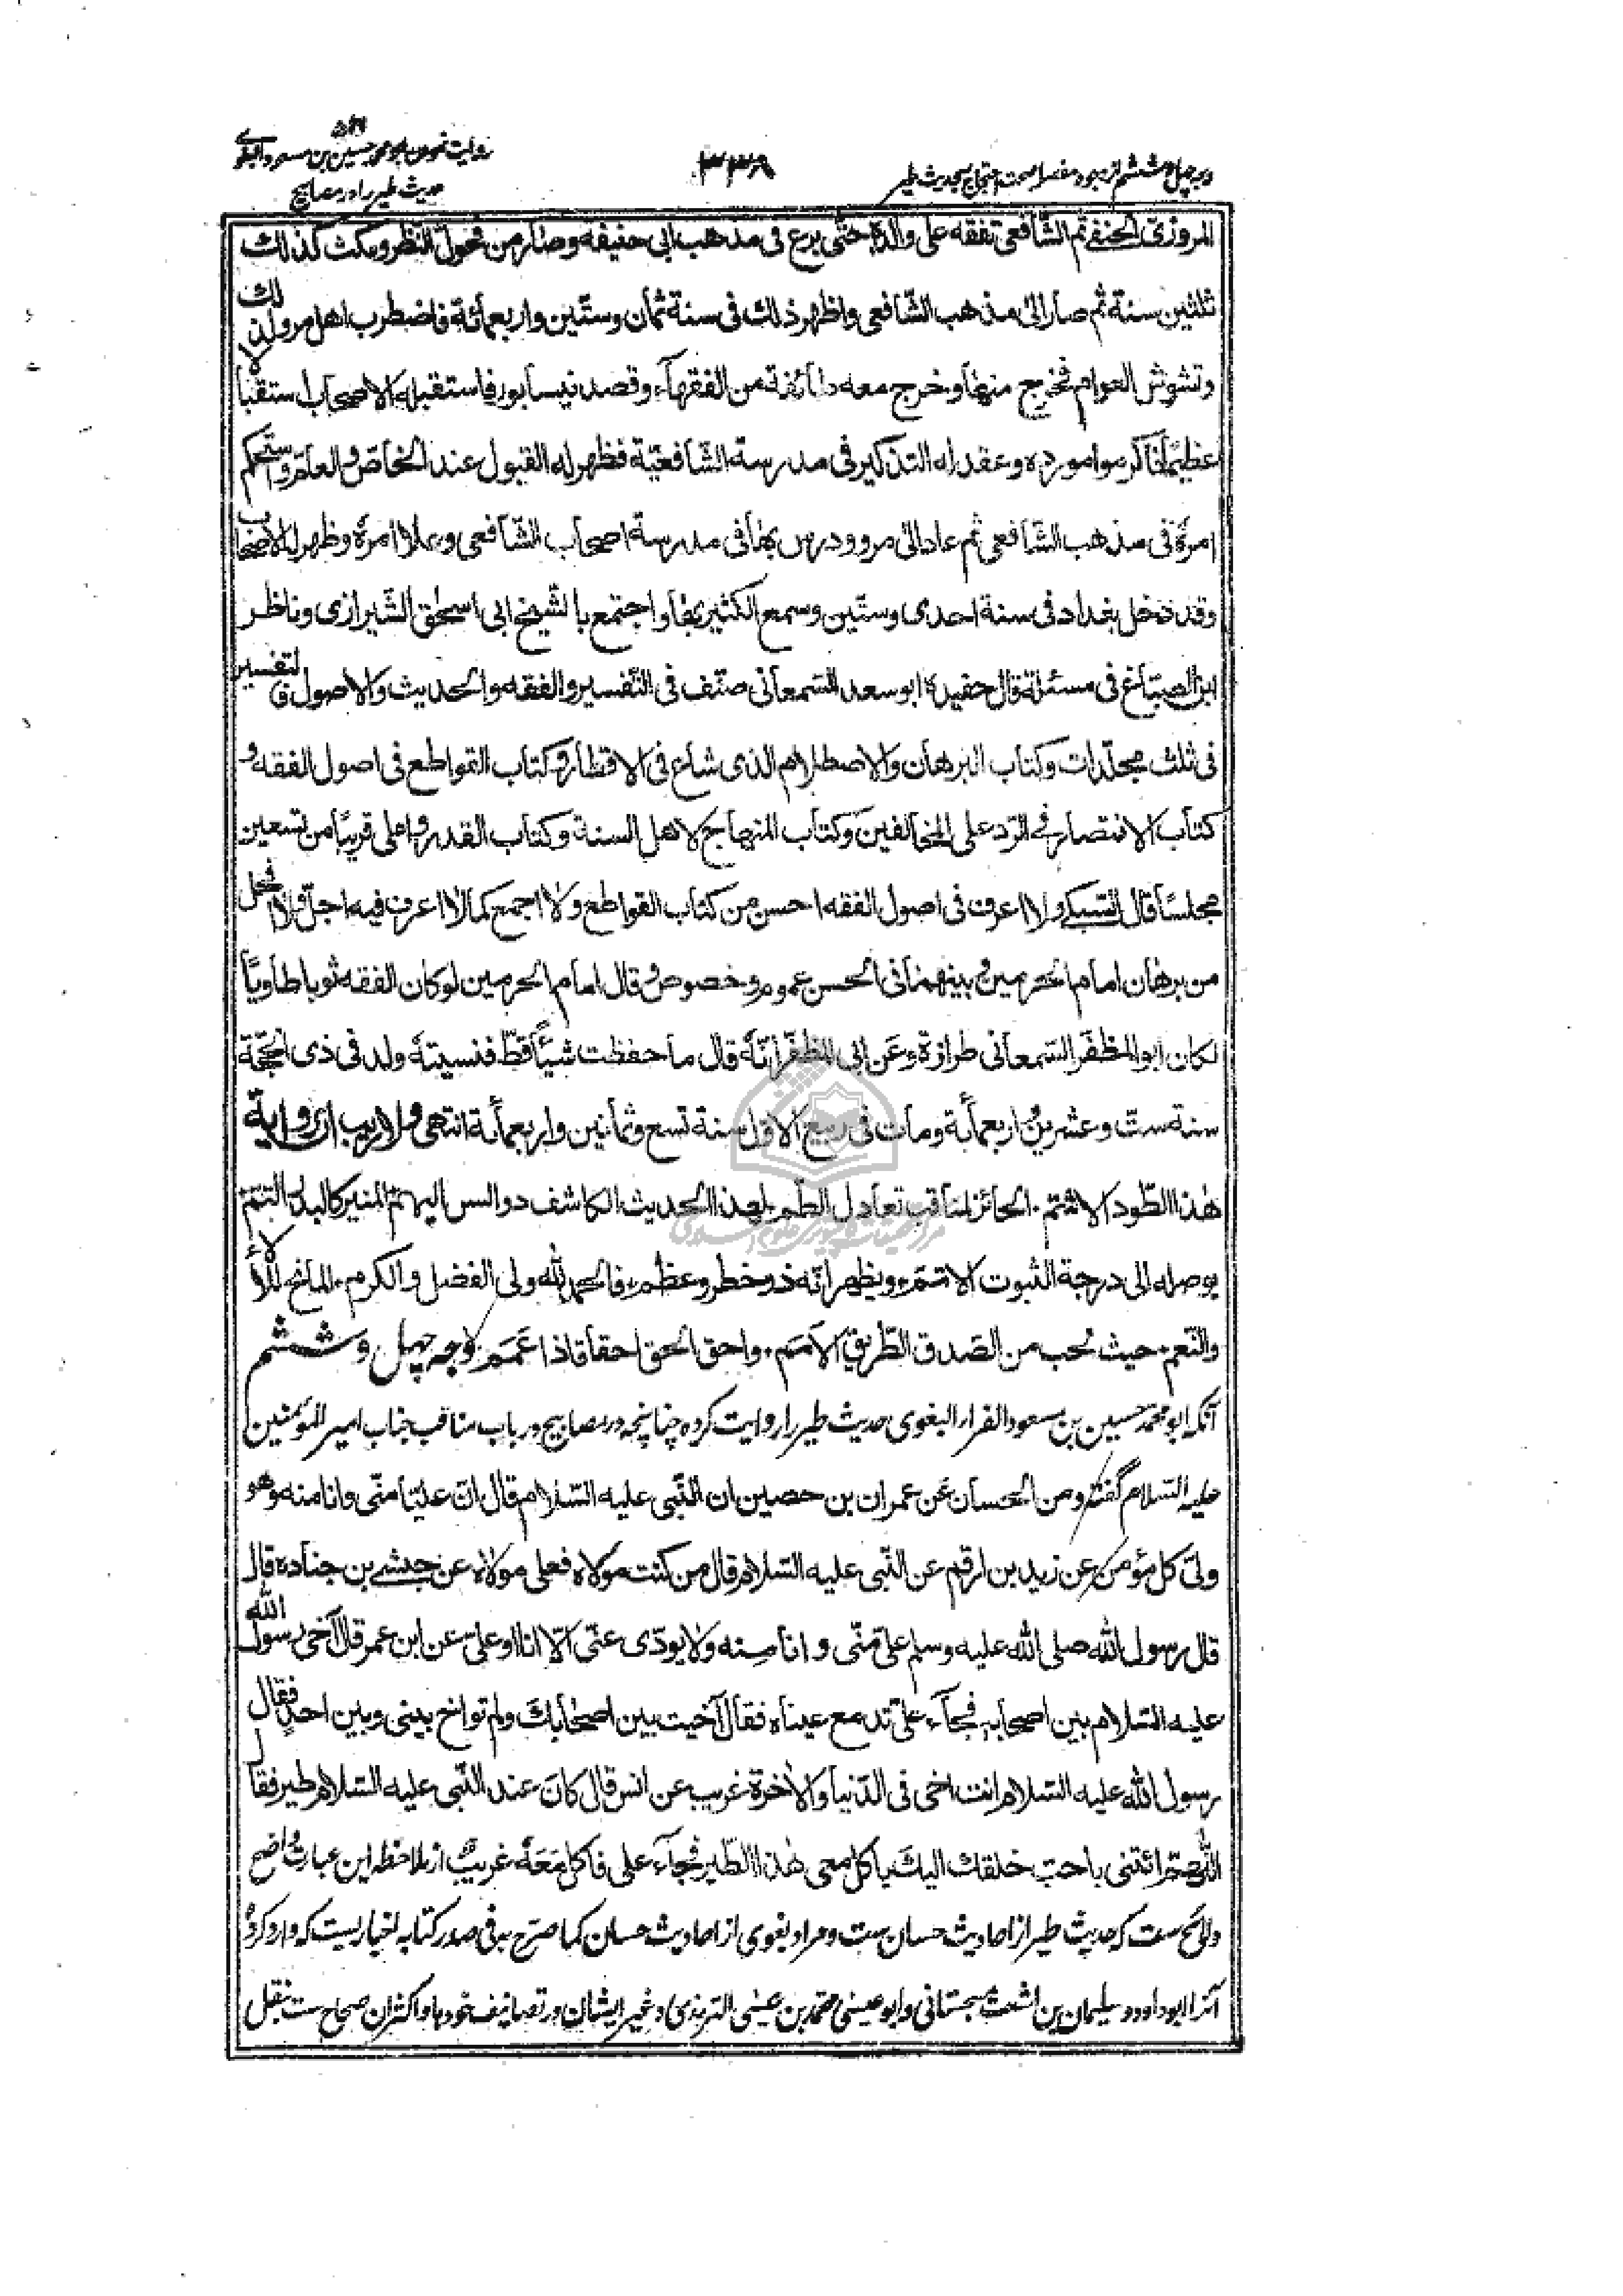 وجه چهل و ششم از وجوه مفصله صحت احتجاج بحدیث طیر
۳۳۸
روایت نمودن ابو محمد حسین بن مسعود البغوی
حدیث طیر را در مصابیح
المروزی الحنفی ثم الشّافعی تفقه علی والده حتّی برع فی مذهب ابی حنیفه و صار من فحول النظر و مکث کذلك
ثلثین سنة ثم صار الی مذهب الشّافعی و اظهر ذلك فی سنة ثمان و ستّین و اربعمائة فاضطرب اهل مرو لذلك
و تشوش العوام فخرج منها و خرج معه طائفة من الفقهآء و قصد نیسابور فاستقبله الاصحاب استقبالا
عظیمًا فاکرموا مورده و عقد له التذکیر فی مدرسة الشّافعیّة فظهر له القبول عند الخاص و العام و استحکم
امره فی مذهب الشّافعی ثم عاد الی مرو و درس بها فی مدرسة اصحاب الشّافعی و علا امره و ظهر له الاصحاب
و قد دخل بغداد فی سنة احدی و ستّین و سمع الکثیر بها و اجتمع بالشیخ ابی اسحق الشّیرازی و ناظر
ابن الصباغ فی مسئلة قال حفیده ابو سعد السّمعانی صنّف فی التّفسیر و الفقه و الحدیث و الاصول فالتفسیر
فی ثلث مجلّدات و کتاب البرهان و الاصطلام الذی شاع فی الاقطار و کتاب القواطع فی اصول الفقه و
کتاب الانتصار فی الرّد علی المخالفین و کتاب المنهاج لاهل السنة و کتاب القدر و املی قریبًا من تسعین
مجلسًا قال السبکی و لا اعرف فی اصول الفقه احسن من کتاب القواطع و لا اجمع کما لا اعرف فیه اجلّ و لا افحل
من برهان امام الحرمین و بینهما فی الحسن عموم و خصوص و قال امام الحرمین لو کان الفقه ثوبا طاویًا
لکان ابو المظفّر السّمعانی طرازه و عن ابی المظفّر انّه قال ما حفظت شیئًا قطّ فنسیته ولد فی ذی الحجّة
سنة ستّ و عشرین و اربعمأیة و مات فی ربیع الاوّل سنة تسع و ثمانین و اربعمأیة انتهی و لا ریب ان روایة
هٰذا الطّود الاشم الحائز لمناقب تعادل الطّم لهذا الحدیث الکاشف دوالس البهم المنیر کالبدر التم
یوصله الی درجة الثبوت الاتمّ و یظهر انّه ذو خطر و عظم فالحمد لله ولی الفضل و الکرم المانح للآلاء
و النعم حیث لحب من الصّدق الطّریق الامم و احق الحق احقاقا ذا عمم وجه چهل و ششم
آنکه ابو محمد حسین بن مسعود الفرار البغوی حدیث طیر را روایت کرده چنانچه در مصابیح در باب مناقب جناب امیر المؤمنین
علیه السّلام گفته و من الحسان عن عمران بن حصین ان النّبی علیه السّلام قال انّ علیّا منّی و انا منه و هو
ولیّ کل مؤمن عن زید بن ارقم عن النّبی علیه السّلام قال من کنت مولاه فعلی مولاه عن حبشی بن جناده قال
قال رسول الله صلی الله علیه و سلم علی منّی و انا منه و لا یودّی عنّی الّا انا او علیّ عن ابن عمر قال آخی رسول الله
علیه السّلام بین اصحابه فجآء علیّ تدمع عیناه فقال آخیت بین اصحابك و لم تواخ بینی و بین احد فقال
رسول الله علیه السّلام انت اخی فی الدّنیا و الآخرة غریب عن انس قال کان عند النّبی علیه السّلام طیر فقال
اللّٰهم ائتنی باحبّ خلقك الیك یاکل معی هٰذا الطّیر فجآء علی فاکل معه غریب از ملاحظه این عبارت واضح
و لائح ست که حدیث طیر از احادیث حسان ست و مراد بغوی از احادیث حسان کما صرّح به فی صدر کتابه اخباریست که وارد کرده
آنرا ابو داود سلیمان بن اشعث سجستانی و ابو عیسی محمد بن عیسی الترمذی و غیر ایشان در تصانیف خودها و اکثر آن صحاح ست بنقل